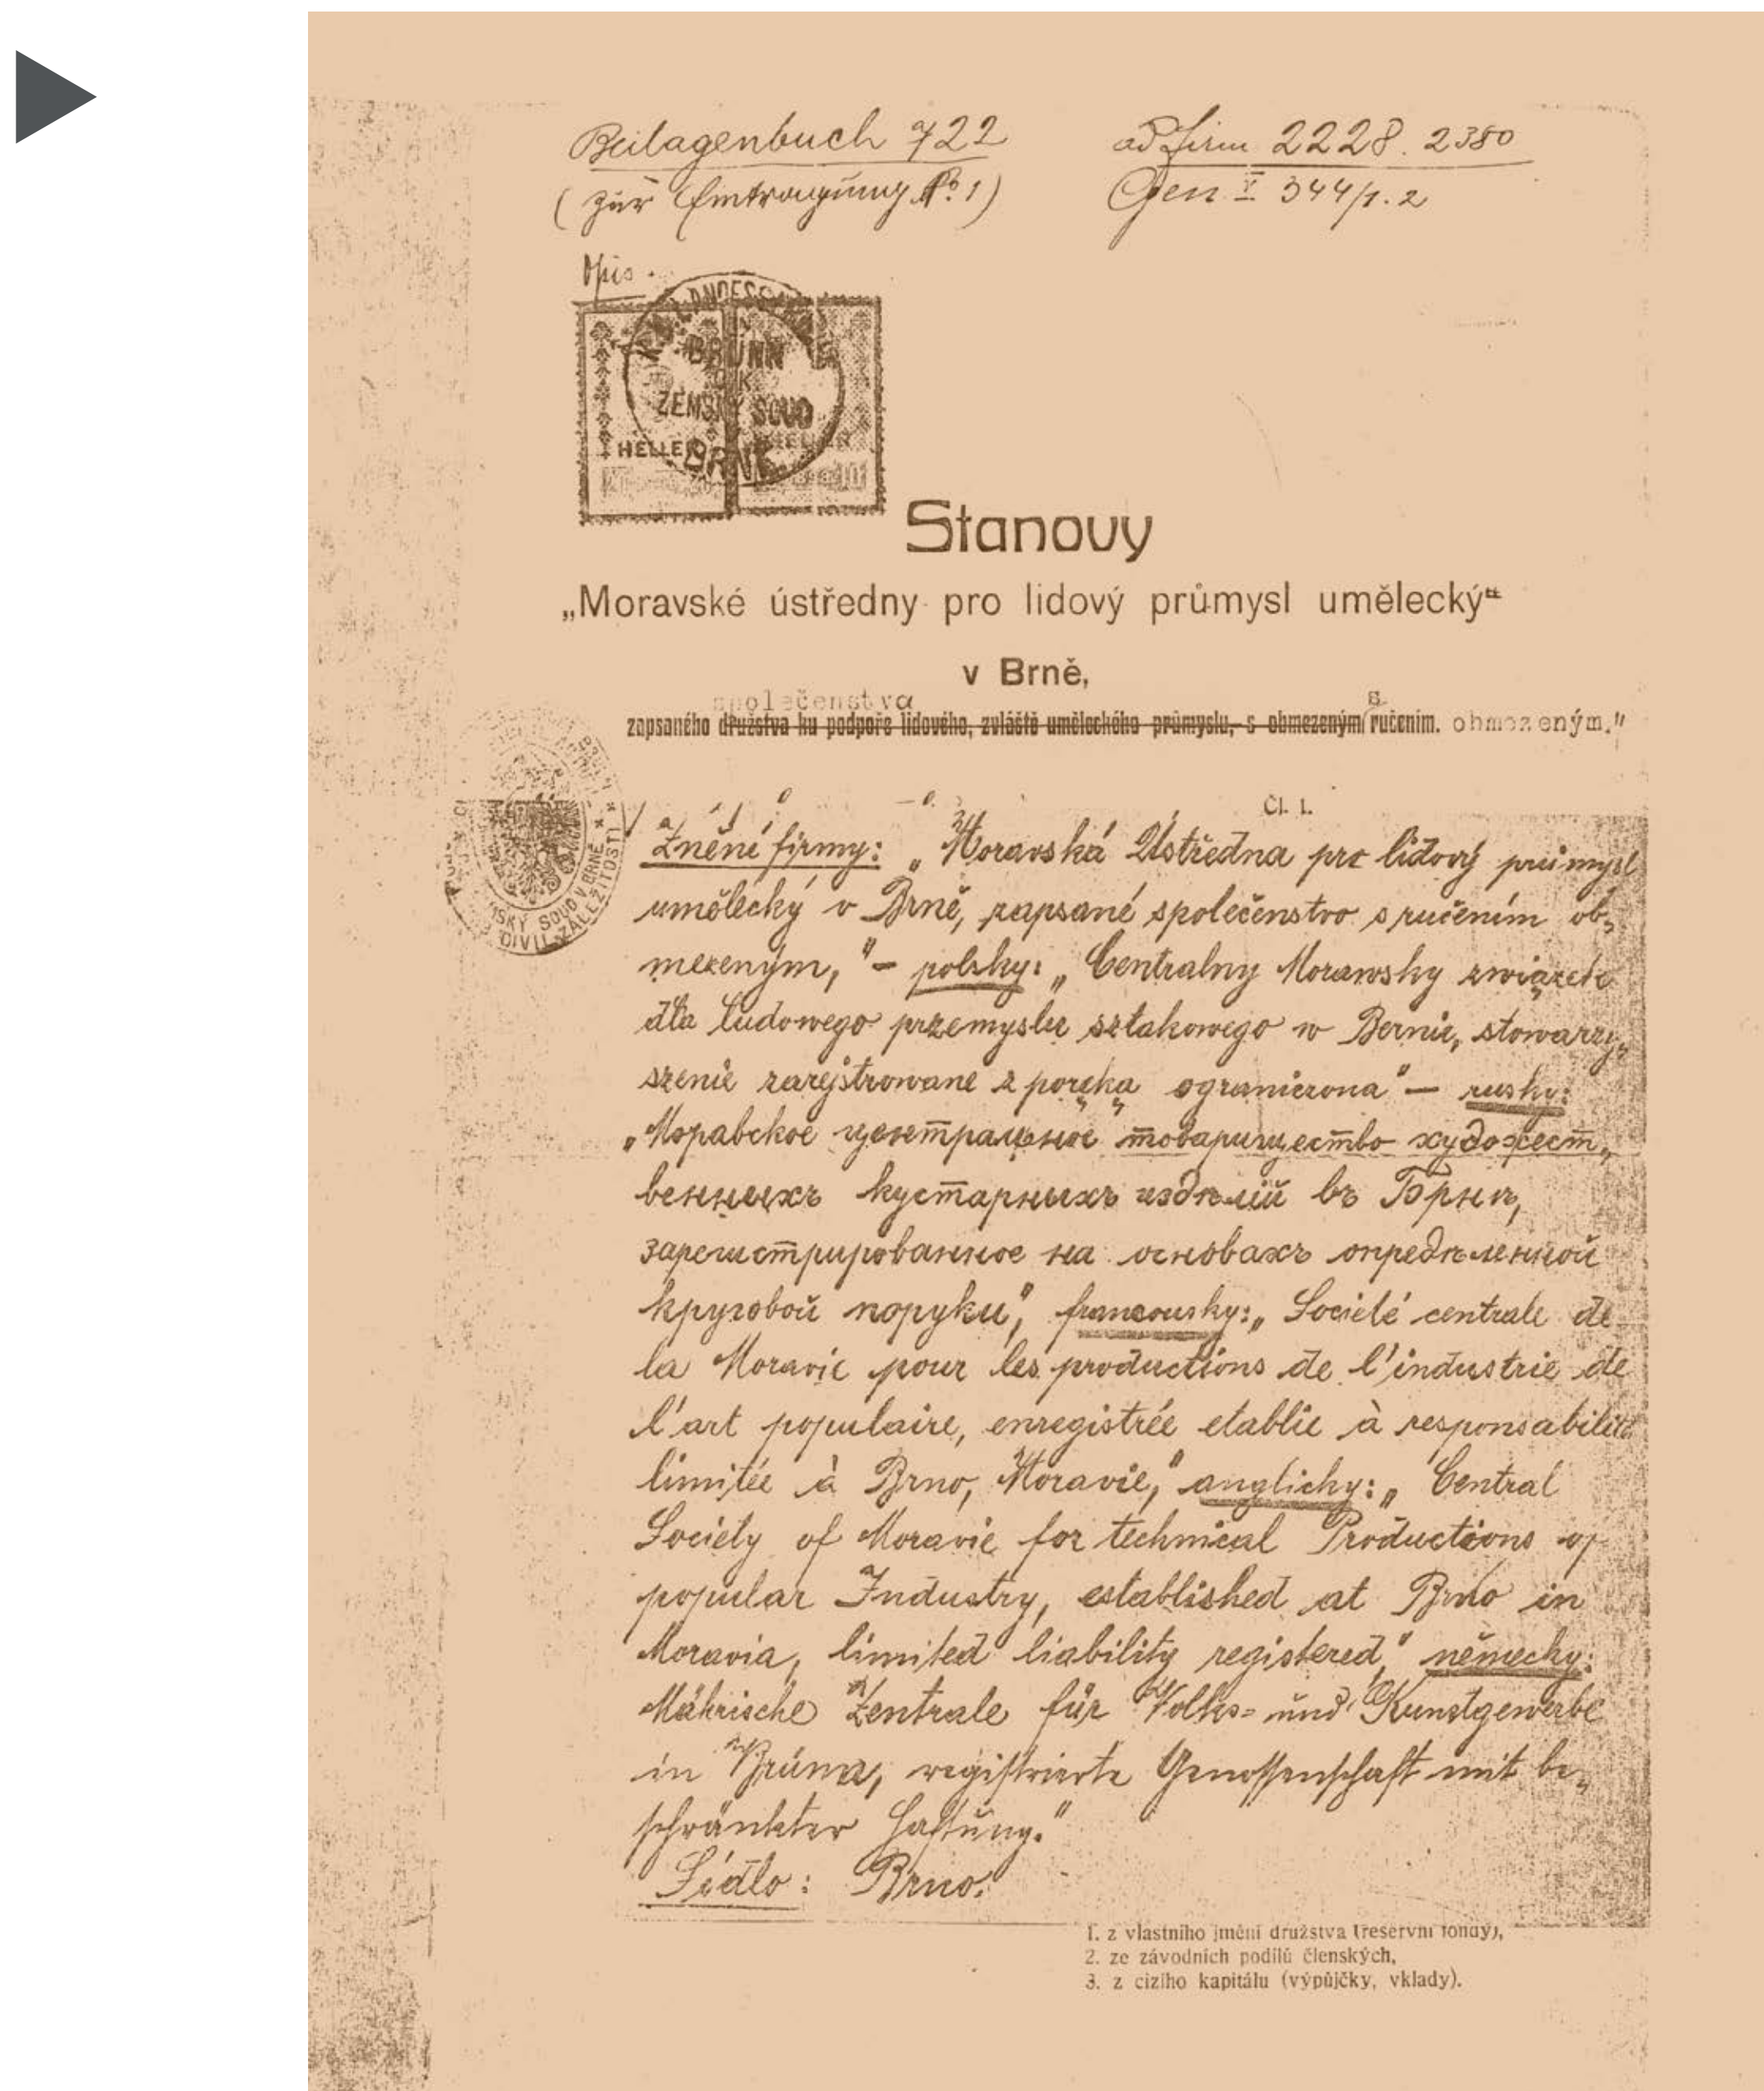 Beilagenbuch 722
ad Firm 2228. 2380
(zur Eintragung № 1)
Gen V 344/1.2
Opis.
BRÜNN
ZEMSKÝ SOUD
HELLER
BRNĚ
Stanovy
„Moravské ústředny pro lidový průmysl umělecký“
v Brně,
společenstva s
zapsaného družstva ku podpoře lidového, zvláště uměleckého průmyslu, s obmezeným ručením. obmezeným."
Čl. 1.
Znění firmy: „Moravská Ústředna pro lidový průmysl
umělecký v Brně, zapsané společenstvo s ručením ob-
mezeným," – polsky: „Centralny Morawsky związek
dla ludowego przemyslu sztukowego w Bernie, stowarzy-
szenie zarejstrowane z poręką ograniczona" – rusky:
„Моравское центральное товарищество художест-
венныхъ кустарныхъ издѣлій въ Бриѣ,
зарегистрированное на основахъ опредѣленной
круговой поруки", francousky: „Société centrale de
la Moravie pour les productions de l'industrie de
l'art populaire, enregistrée etablie à responsabilité
limitée à Brno, Moravie," anglicky: „Central
Society of Moravie for technical Productions of
popular Industry, established at Brno in
Moravia, limited liability registered," německy:
Mährische Zentrale für Volks- und Kunstgewerbe
in Brünn, registrierte Genossenschaft mit be-
schränkter Haftung."
Sídlo: Brno.
1. z vlastního jmění družstva (reservní fondy),
2. ze závodních podílů členských,
3. z cizího kapitálu (výpůjčky, vklady).